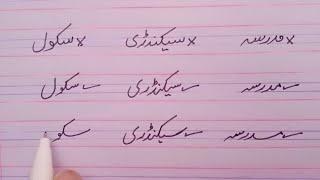 × مدرسہ × سیکنڈری × سکول
مدرسہ سیکنڈری سکول
مدرسہ سیکنڈری سکول